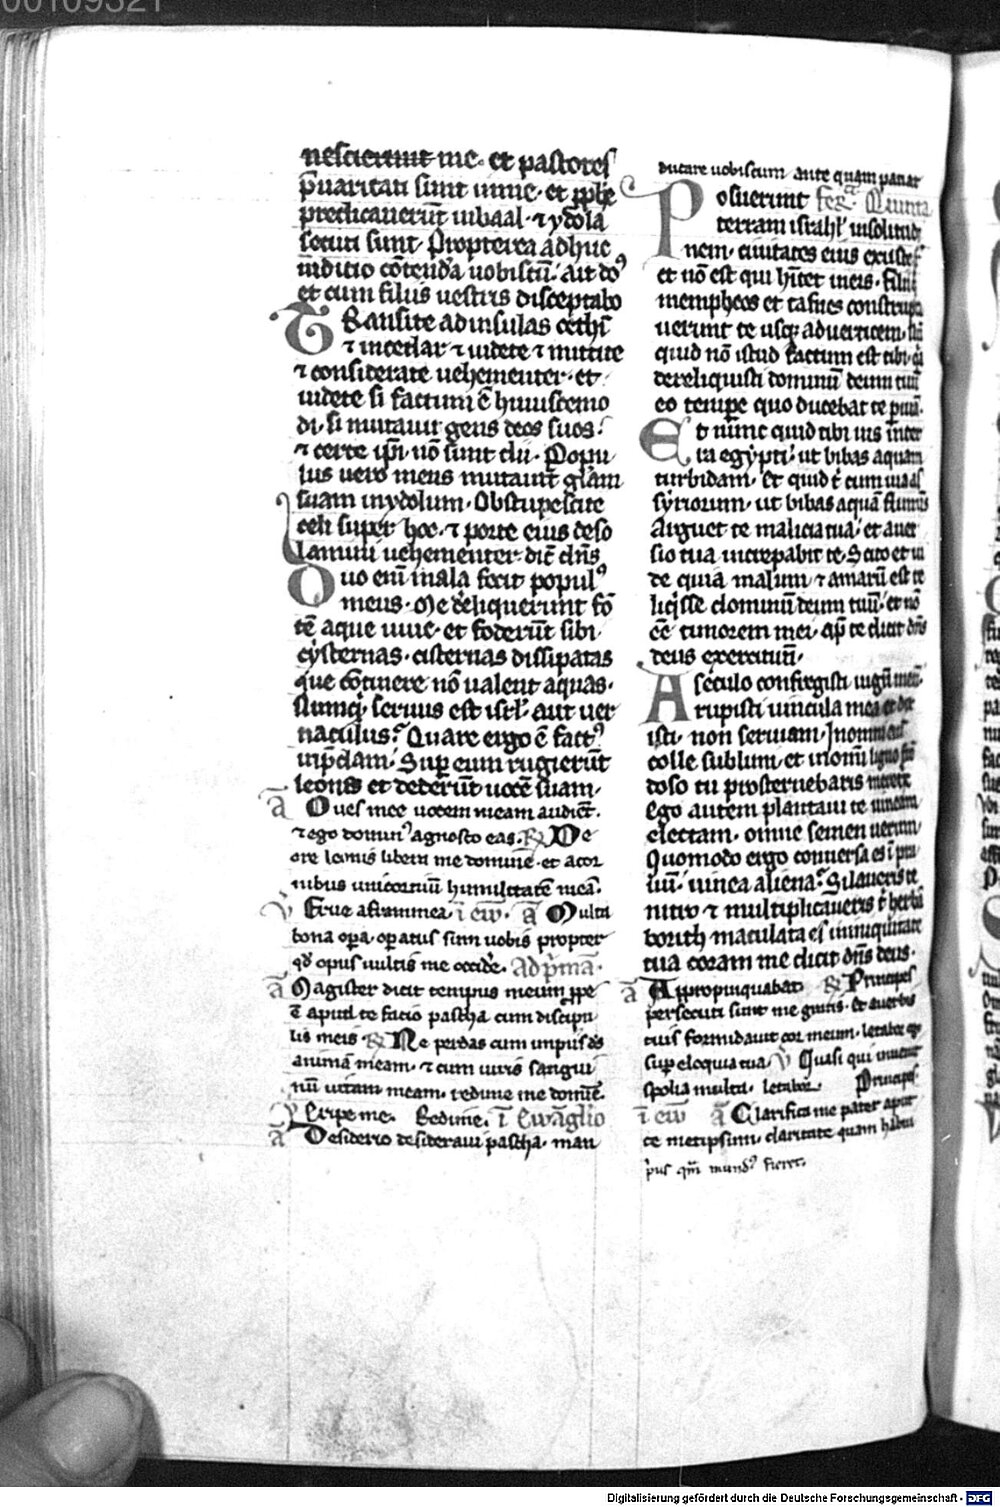 00109321
nescierunt me· et pastores
p̄uaritati sunt in me· et ꝓphe
predicauerūt in baal· ⁊ ydola
secuti sunt· Propterea adhuc
iudicio cōtendā uobiscū· ait dn̄s
et cum filiis uestris disceptabo
TRansite ad insulas cethī
⁊ in cedar ⁊ uidete ⁊ mittite
⁊ considerate uehementer· et
uidete si factum ē huiuscemo
di· si mutauit gens deos suos·
⁊ certe ip̄i nō sunt dii· Popu
lus uero meus mutauit gl̄am
suam in ydolum· Obstupescite
celi super hoc· ⁊ porte eius deso
lamini uehementer· dic̄ dn̄s
Duo eni mala fecit populꝰ
meus· Me dereliquerunt fō
tē aque uiue· et foderūt sibi
cysternas· cisternas dissipatas
que cōtinere nō ualent aquas·
Nunqͥ seruus est isrl̄· aut uer
naculus? Quare ergo ē factꝰ
in p̄dam· Sup eum rugierūt
leones et dederūt uocē suam·
a̅ Oues mee uocem meam audiēt·
⁊ ego dominꝰ agnosco eas· ℟ De
ore leonis libera me domine· et a cor
nibus unicornuū humilitatē meā·
℣ Erue a framea· ī ew̄· a̅ Multa
bona oꝑa· oꝑatus sum uobis propter
qd̄ opus uultis me occidē· Ad p̄mā·
a̅ Magister dicit tempus meum ꝓpe
ē aput te facio pascha cum discipu
lis meis· ℟ Ne perdas cum impiis ds̄
animā meam· ⁊ cum uiris sangui
nū uitam meam· redime me domīe·
℣ Eripe me· Redime· ī Ewāglio
a̅ Desiderio desideraui pascha· man
ducare uobiscum ante quam paciar
Posuerunt fer̄ Quinta
terram israhl̄ in solitudi
nem· ciuitates eius exuste sūt
et nō est qui hītet in eis· Filii
mempheos et tafnes constupra
uerunt te usqꝫ ad uerticem·
quid nō istud factum est tibi· qͥ
dereliquisti dominū deum tuū
eo tempe quo ducebat te p uiā·
Et nunc quid tibi uis in
uia egypti· ut bibas aquam
turbidam· Et quid t̄ cum uia as
syriorum· ut bibas aquā fluminis
Arguet te malicia tua· et auer
sio tua increpabit te· Scito et ui
de quia malum ⁊ amarū est te
liqͥsse dominum deum tuū· et nō
ēē timorem mei· ap̄ te dicit dn̄s
deus exercituū·
A seculo confregisti iugū meū·
rupisti uincula mea et dix
isti· non seruiam· In omni enī
colle sublimi· et in omī ligno frō
doso tu prosternebaris meretrix
Ego autem plantaui te uineam
electam· omne semen uerum·
Quomodo ergo conuersa es ī pra
uū· uinea aliena? Si laueris te
nitro ⁊ multiplicaueris t̄ herbā
borith maculata es in iniquitate
tua coram me dicit dn̄s deus·
a̅ Appropinquabat ℟ Principes
persecuti sunt me gratis· et a uerbis
tuis formidauit cor meum· letabor ego
sup eloquia tua· ℣ Quasi qui inuenit
spolia multa· letabor Principes·
ī ew̄ a̅ Clarifica me pater aput
te metipsum· claritate quam habui
p̄us qm̄ mundꝰ fieret·
Digitalisierung gefördert durch die Deutsche Forschungsgemeinschaft - DFG